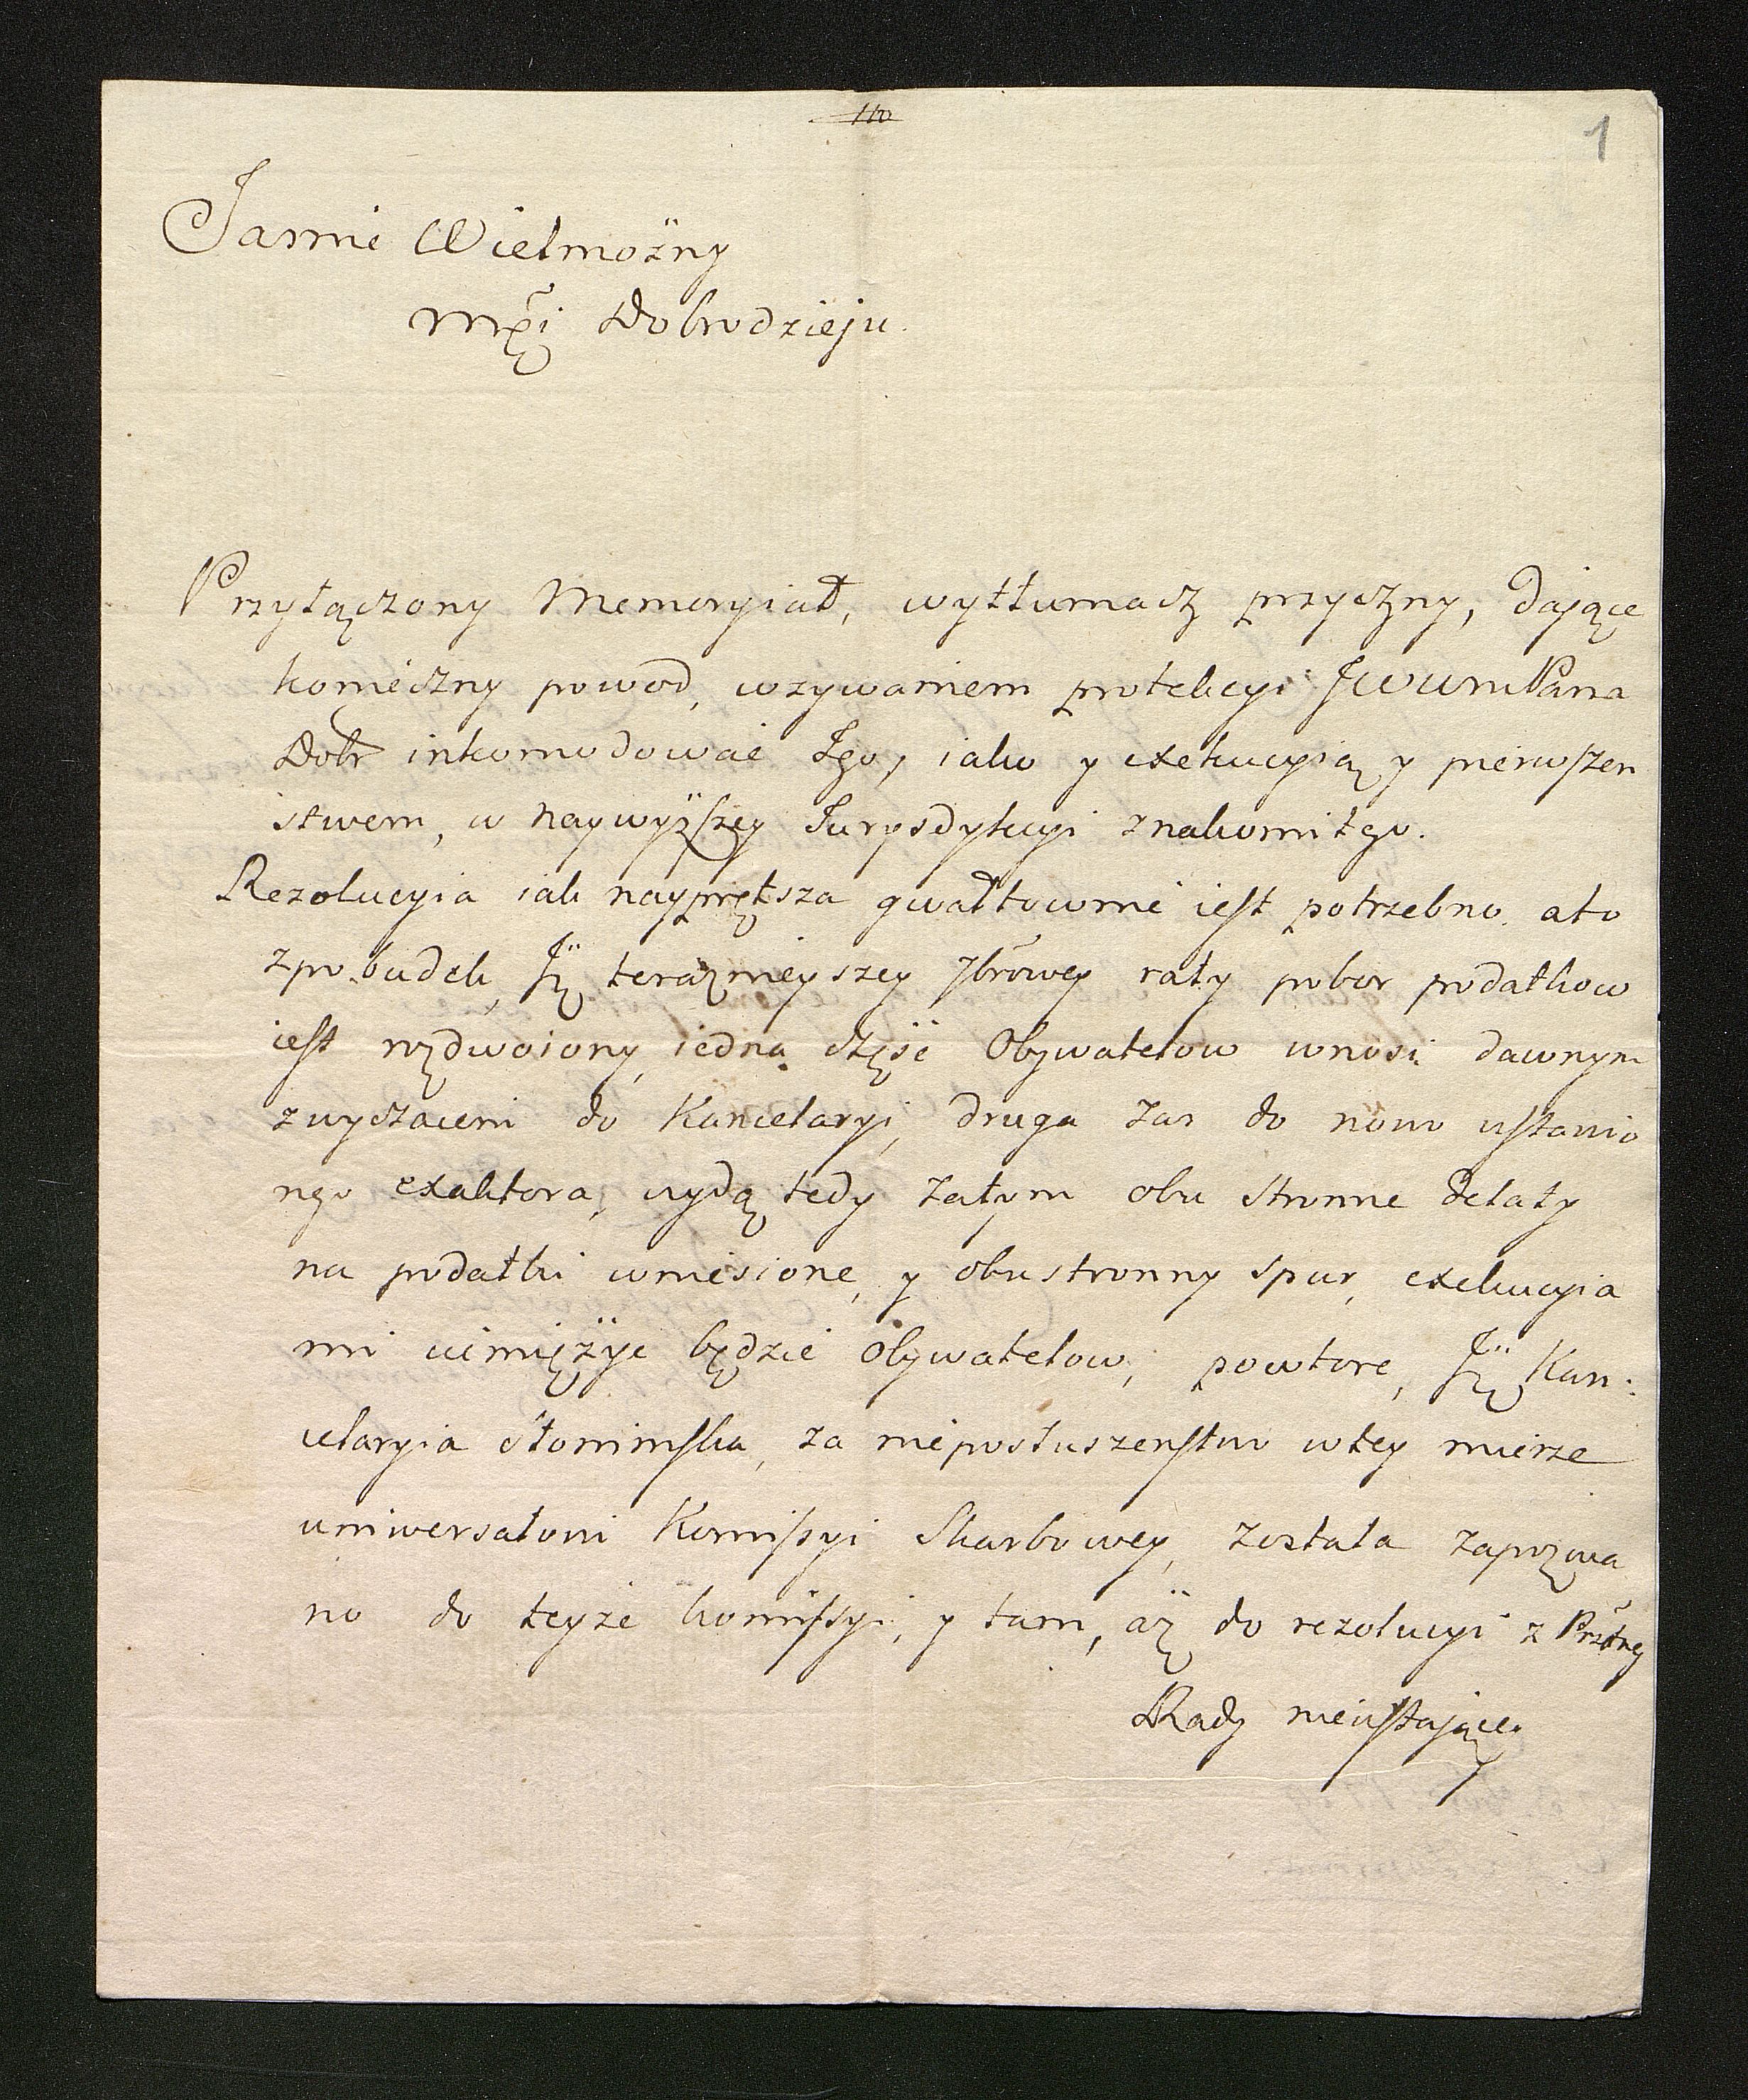 110
1
Jasnie Wielmożny
Mści Dobrodzieju.
Przyłączony Memoryiał, wytłumacz przyczny, dające
konieczny powod, wzywaniem protekcyi JWWmPana
Dobr inkomodować Jgo, iako y exekucyią y pierwszen
istwem, w naywyższey Jurysdykcyi znakomitgo.
Rezolucyia iak nayprętsza gwałtownie iest potrzebno, ato
zpobudek, Iż terażnieyszey 7browey raty pobor podatkow
iest rozdwoiony, iedna część Obywatelow wnosi dawnym
zwyczaiem do Kancelaryi, druga zas do nowo ustanio
ngo exaktora, wydą tedy zatym obu stronne delaty
na podatki wniesione, y obustronny spur, exekucyia
mi uciniężyc będzie obywatelow, powtore, Iż Kan:
celaryia słonimska, za nieposłuszenstwo wtey mierze
uniwersałoni Komissyi Skarbowey, została zapozwa
no do teyże komissyi, y tam, aż do rezolucyi z
Rady nieustającey